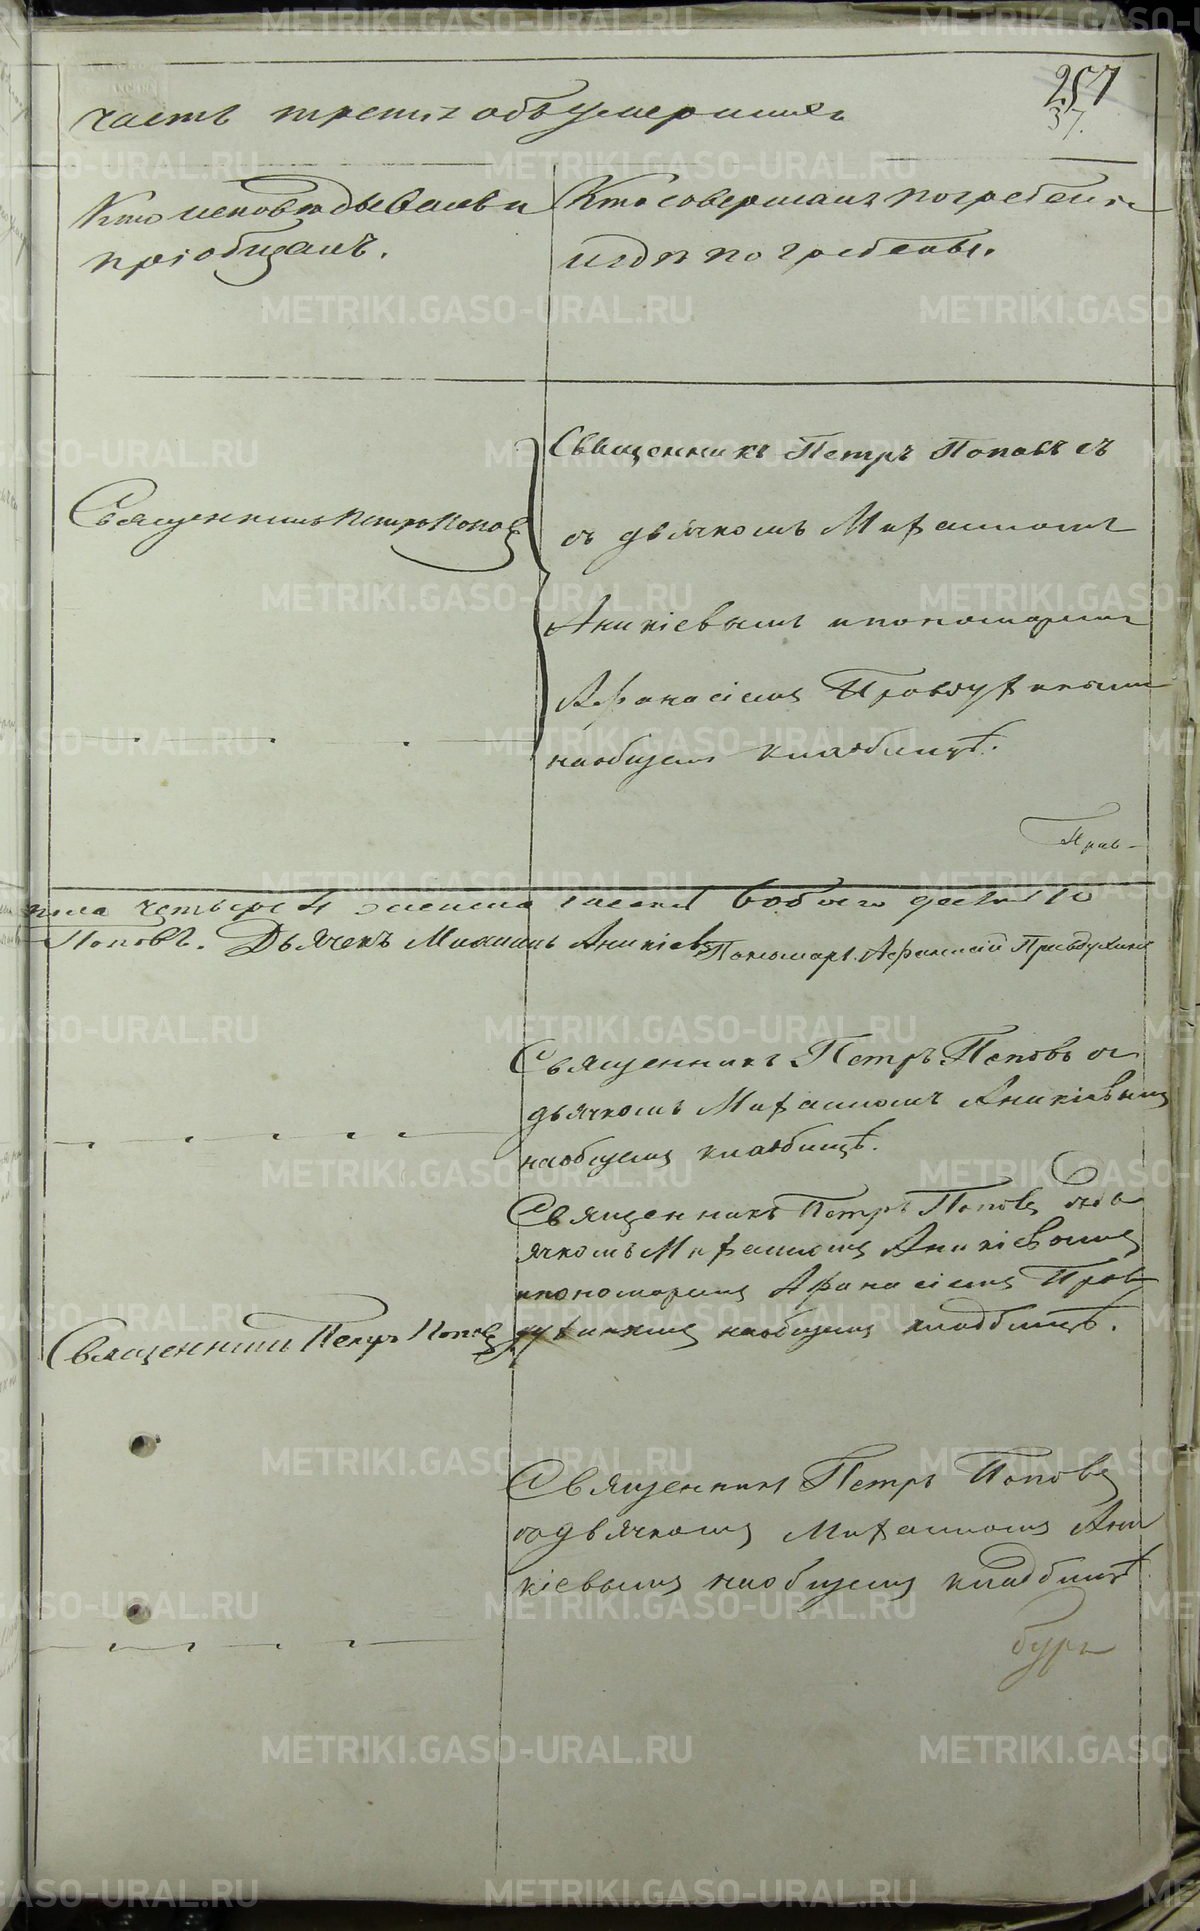 257
37.
часть третія объ умершихъ
Кто исповѣдывалъ и
пріобщалъ.
Кто совершалъ погребеніе
и гдѣ погребены.
Священникъ Петръ Поповъ съ
Священникъ Петръ Поповъ
съ дьячкомъ Михаиломъ
Аникіевымъ и пономаремъ
Афанасіемъ Правдухинымъ
на общемъ кладбищѣ.
Прав-
четыре 4 женска обоего девять
Поповъ. Дьячекъ Михаилъ Аникіевъ Пономарь Афанасій Правдухинъ
Священникъ Петръ Поповъ съ
дьячкомъ Михаиломъ Аникіевымъ
на общемъ кладбищѣ.
Священникъ Петръ Поповъ съ дь
ячкомъ Михаиломъ Аникіевымъ
и пономаремъ Афанасіемъ Прав
духинымъ на общемъ кладбищѣ.
Священникъ Петръ Поповъ
Священникъ Петръ Поповъ
съ дьячкомъ Михаиломъ Ани
кіевымъ на общемъ кладбищѣ
METRIKI.GASO-URAL.RU